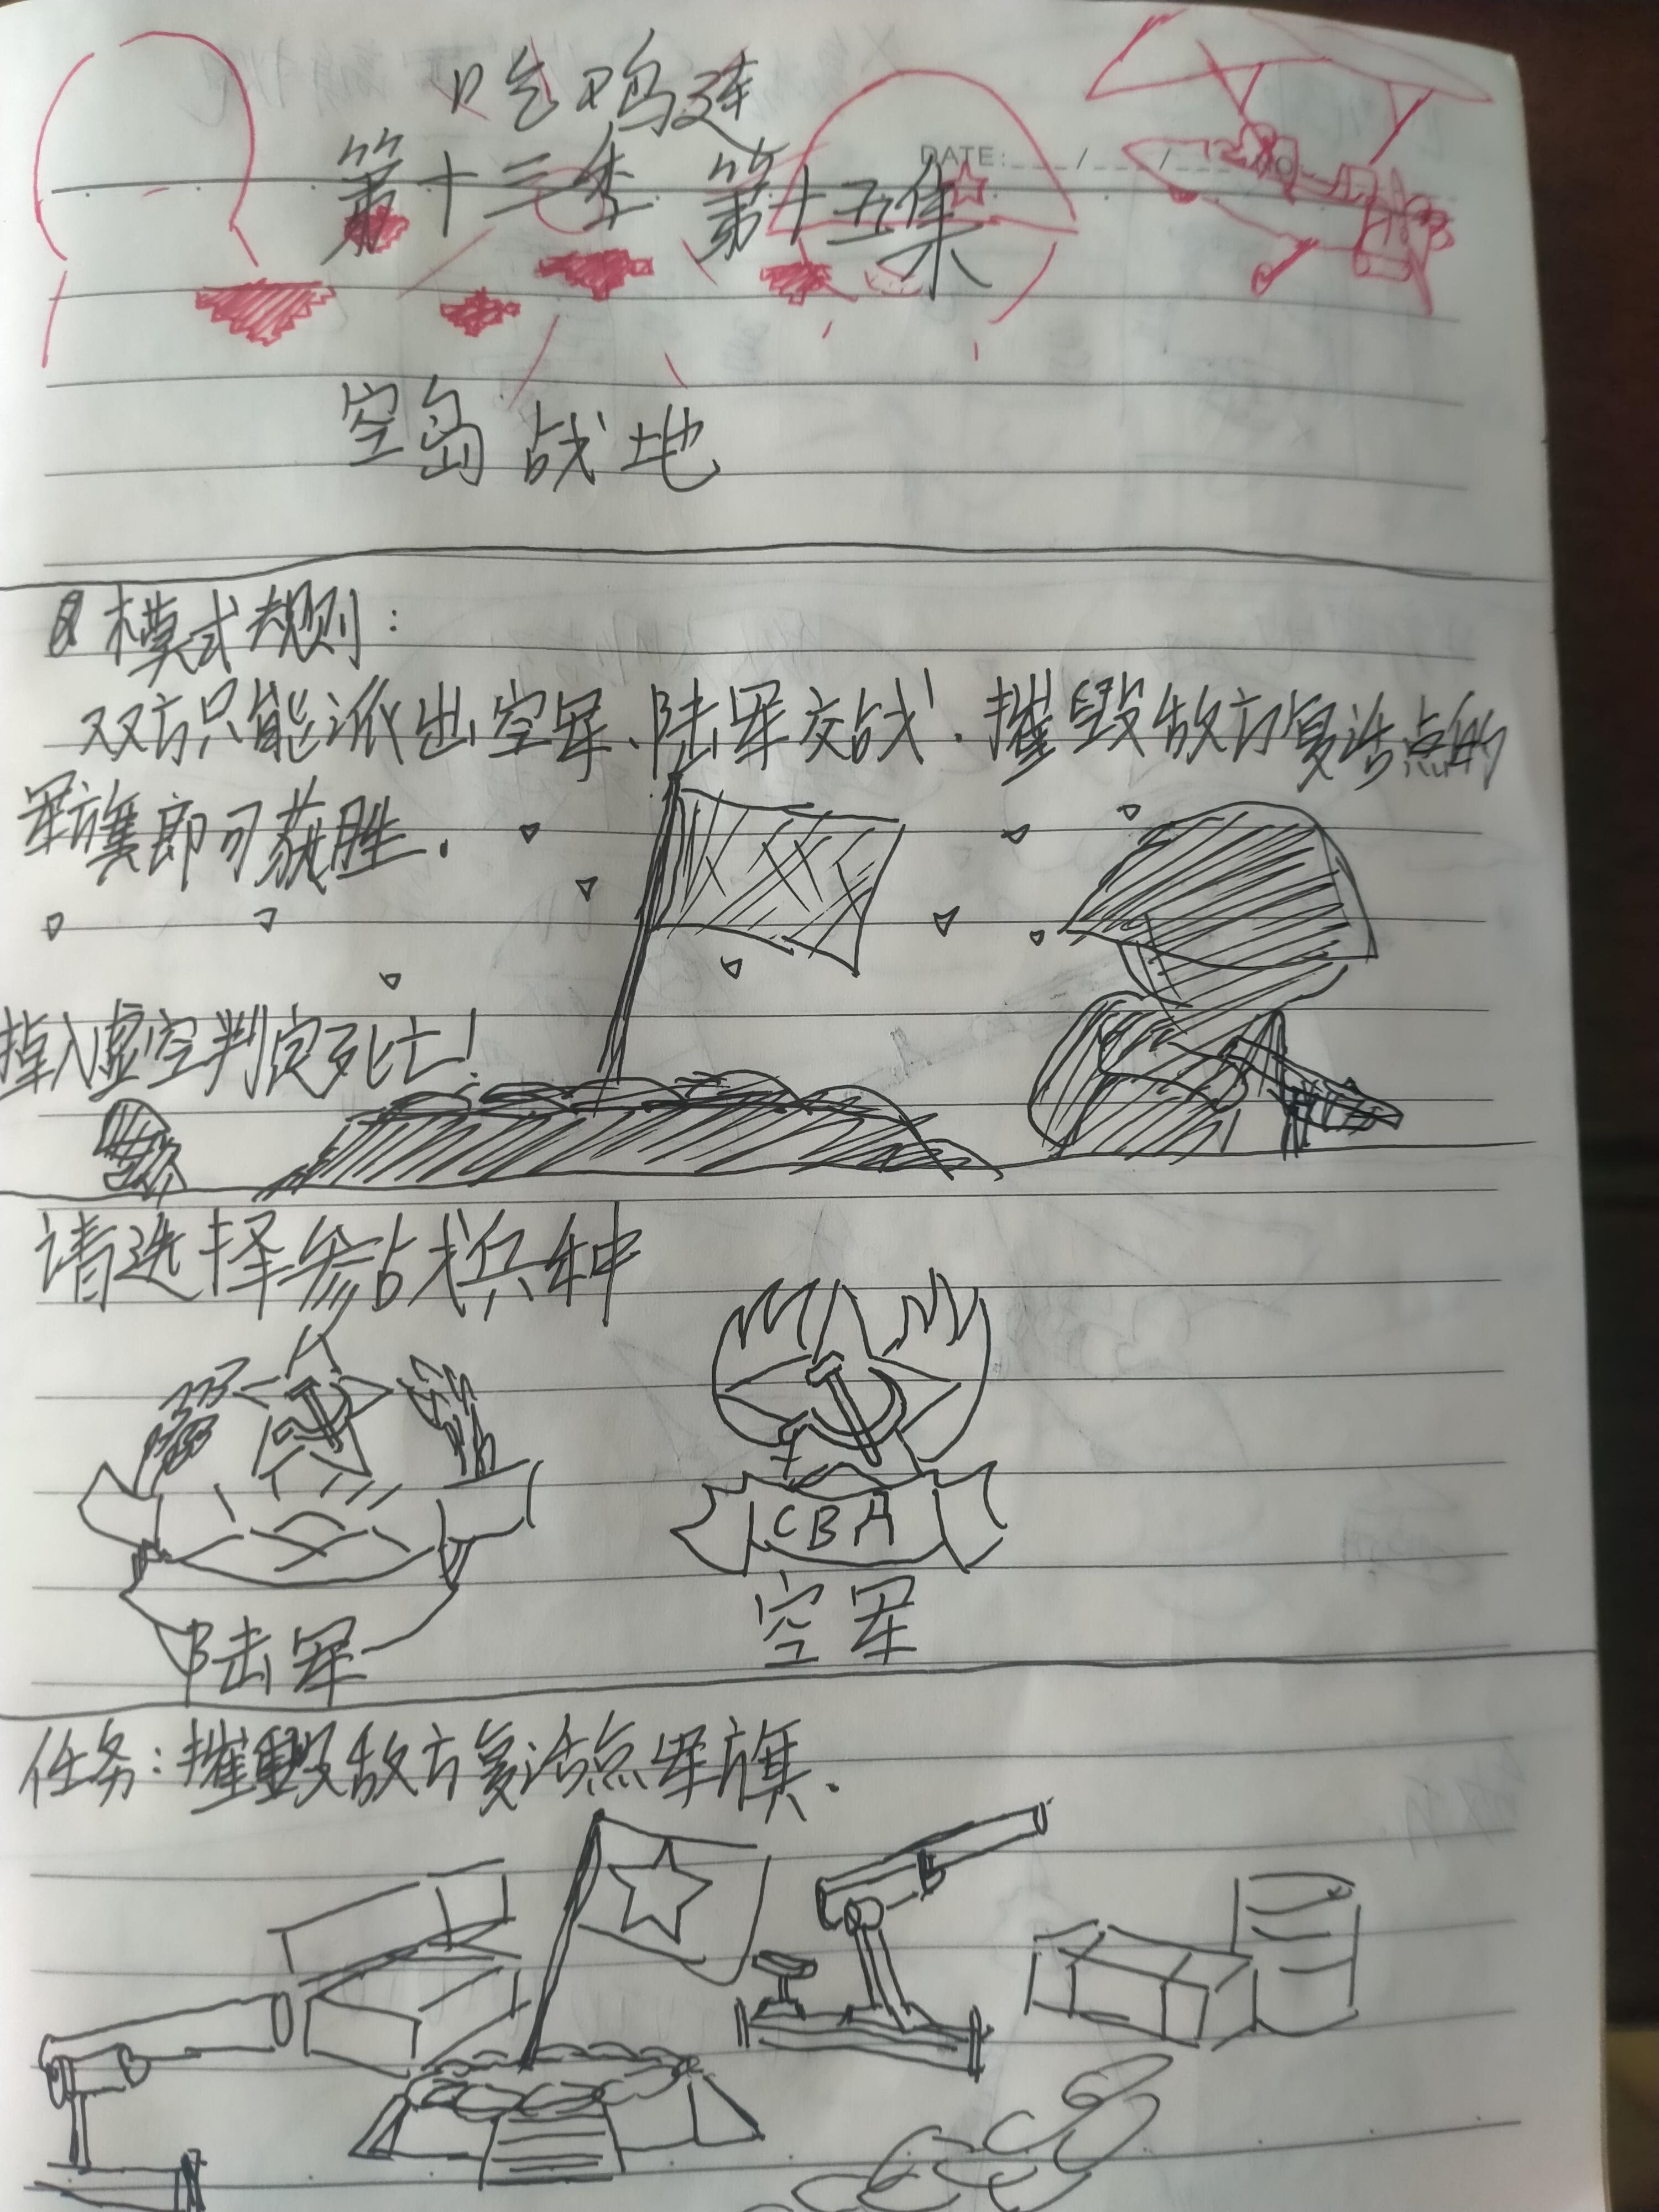 吃鸡连
第十三季 第十五集
DATE: / /
空岛战地
模式规则:
双方只能派出空军、陆军交战.摧毁敌方复活点的
军旗即可获胜.
掉入虚空判定死亡!
请选择参战兵种
CBA
陆军
空军
任务:摧毁敌方复活点军旗.